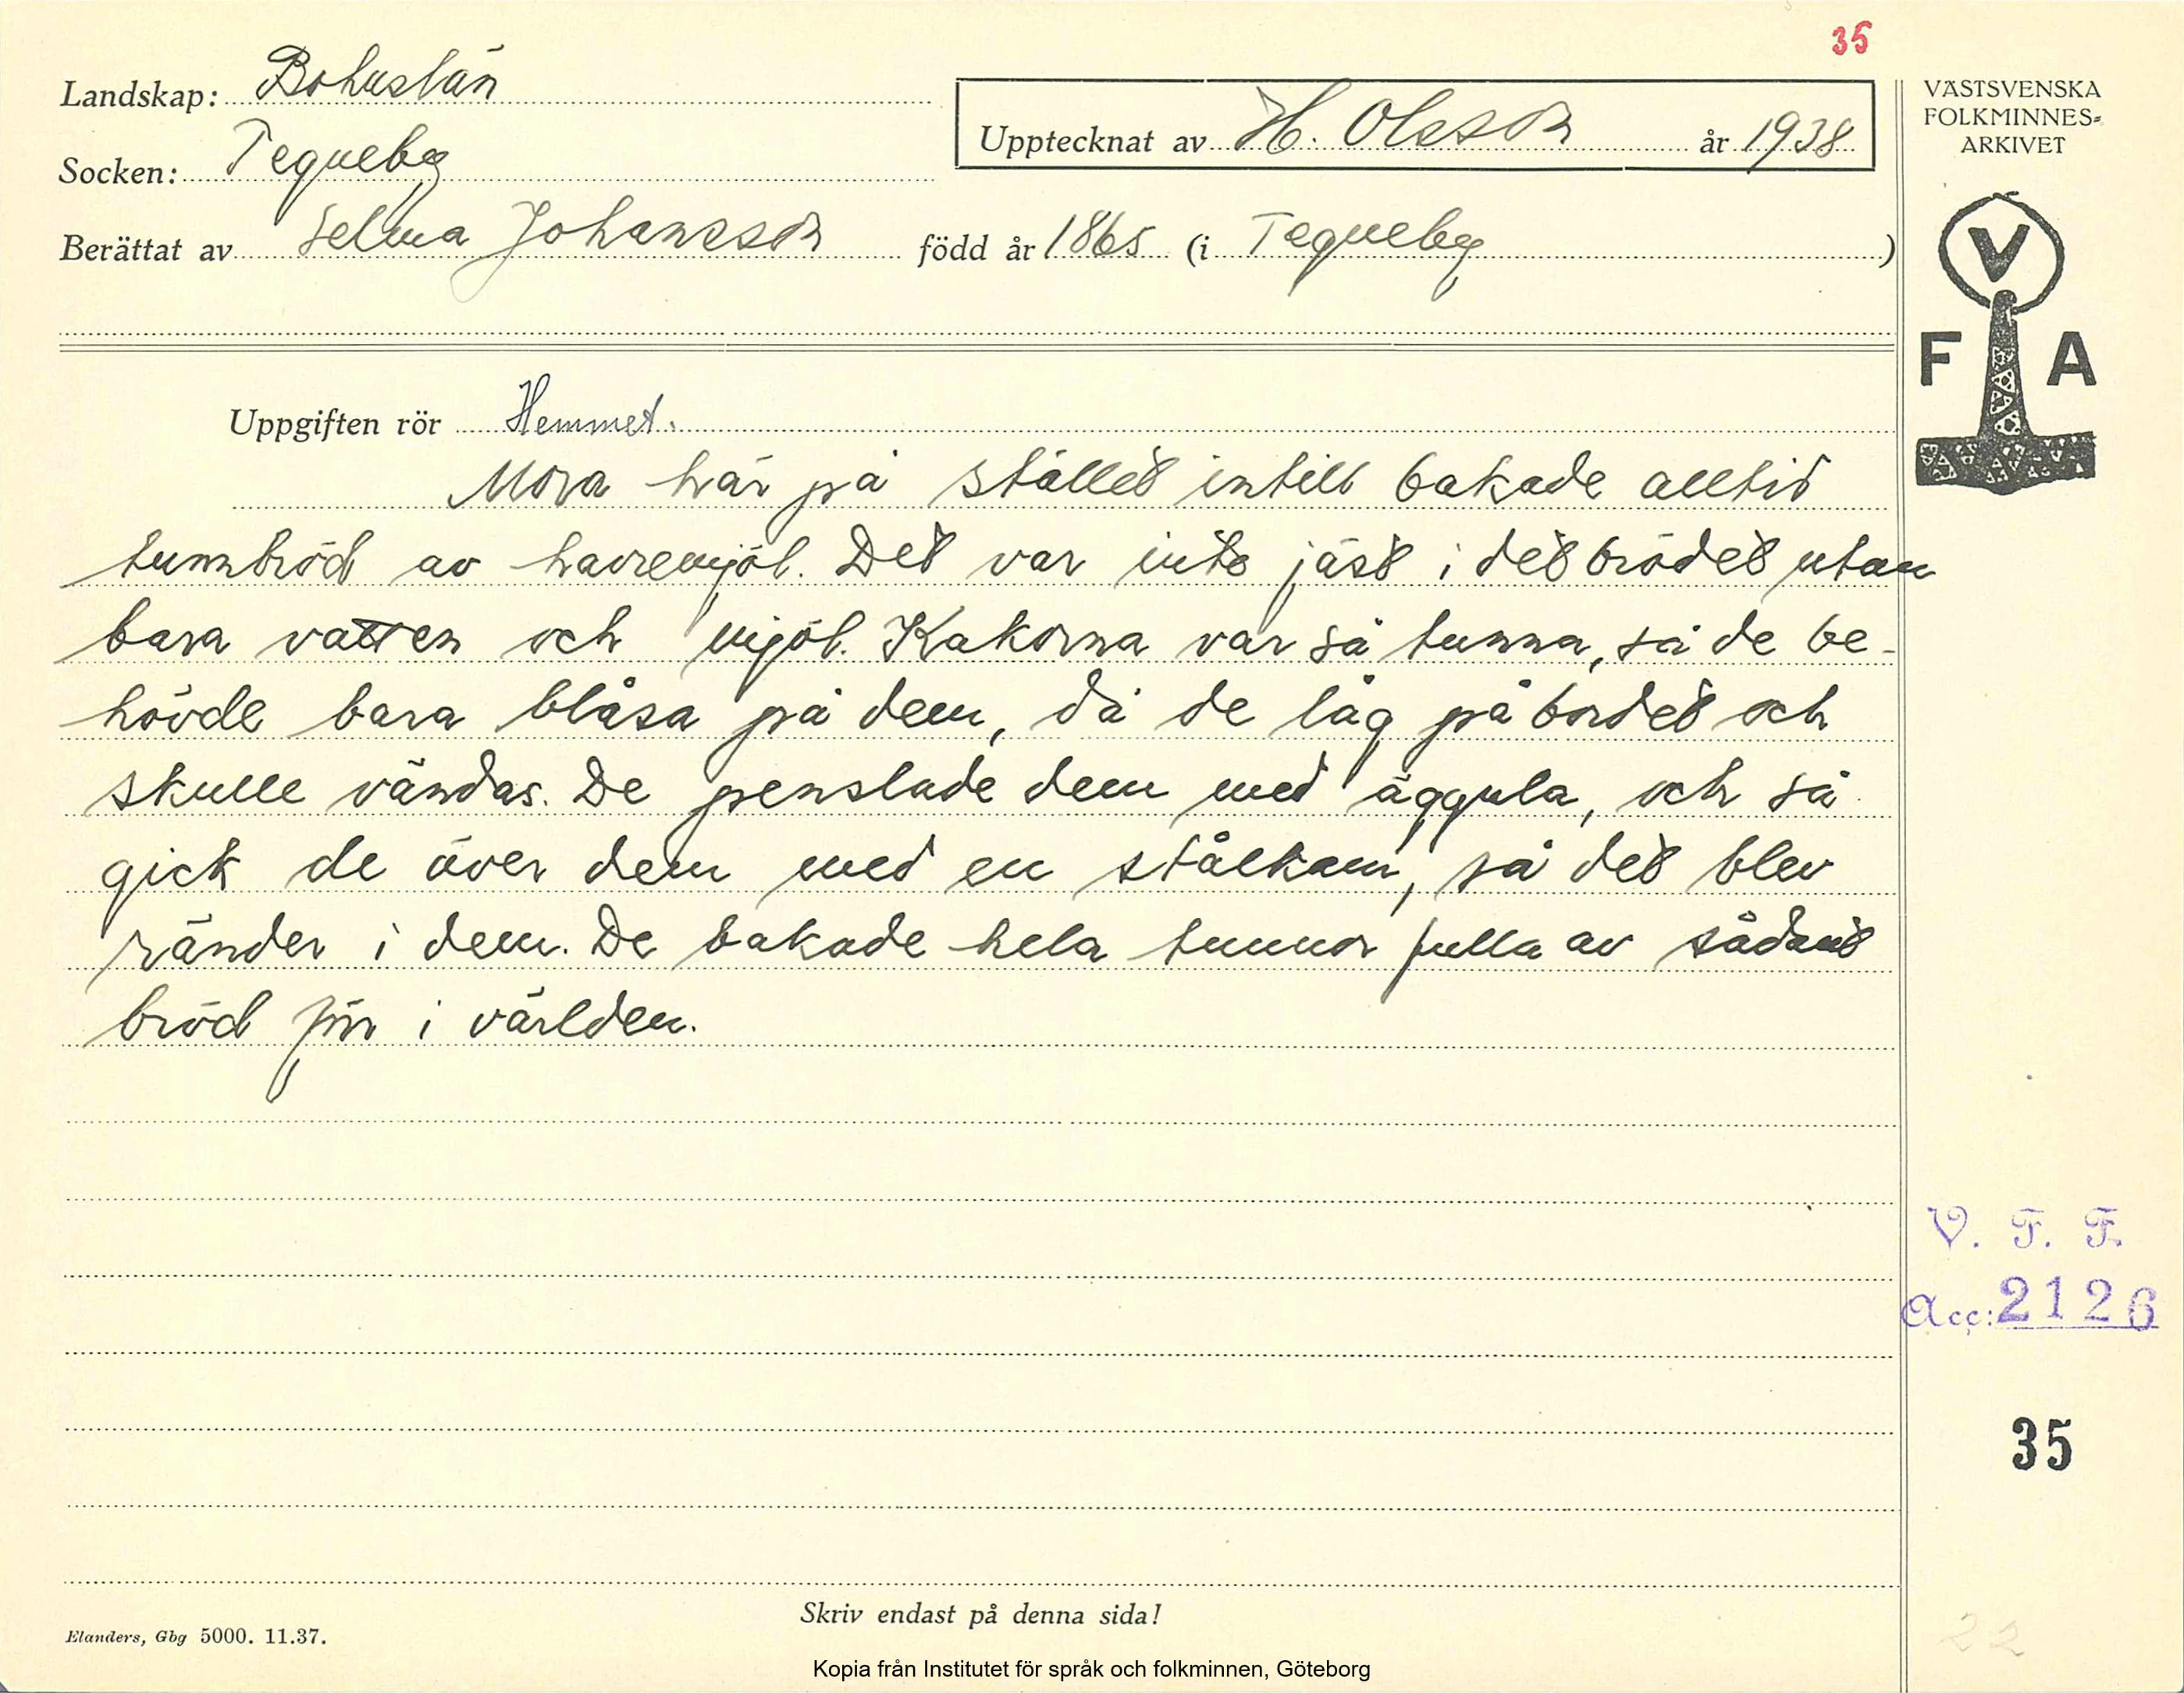 35
Landskap: Bohuslän
Socken: Tegneby
Upptecknat av H. Olsson år 1938
Berättat av Selma Johansson född år 1865 (i Tegneby )
VÄSTSVENSKA
FOLKMINNES-
ARKIVET
V
F A
Uppgiften rör Hemmet.
Mora här på stället intill bakade alltid
tunnbröd av havremjöl. Det var inte jäst i det brödet utan
bara vatten och mjöl. Kakorna var så tunna, så de be-
hövde bara blåsa på dem, då de låg på bordet och
skulle vändas. De penslade dem med äggula, och så
gick de över dem med en stålkam, så det blev
ränder i dem. De bakade hela tunnor fulla av sådant
bröd förr i världen.
V. F. F.
Acc: 2126
35
Skriv endast på denna sida!
Elanders, Gbg 5000. 11.37.
22
Kopia från Institutet för språk och folkminnen, Göteborg